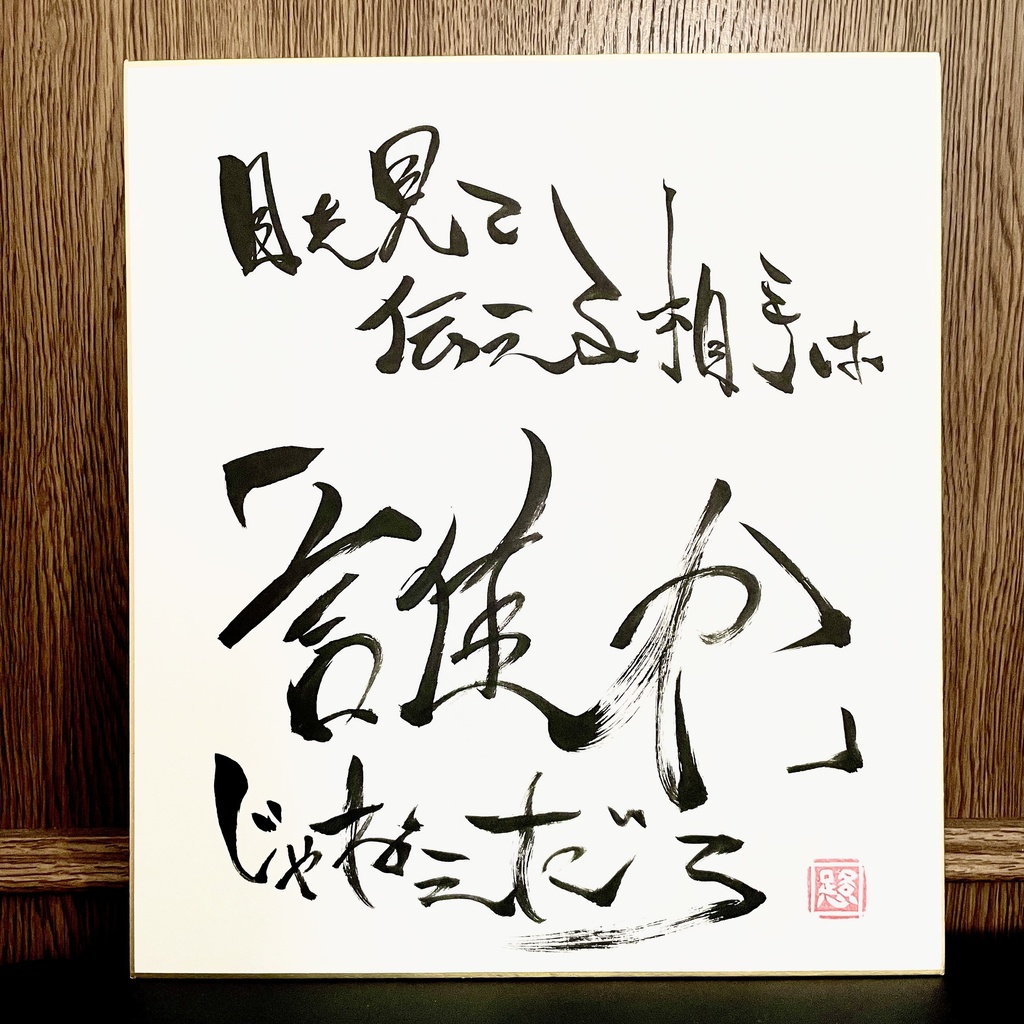 目を見て
伝える相手は
「誰か」
じゃないだろ